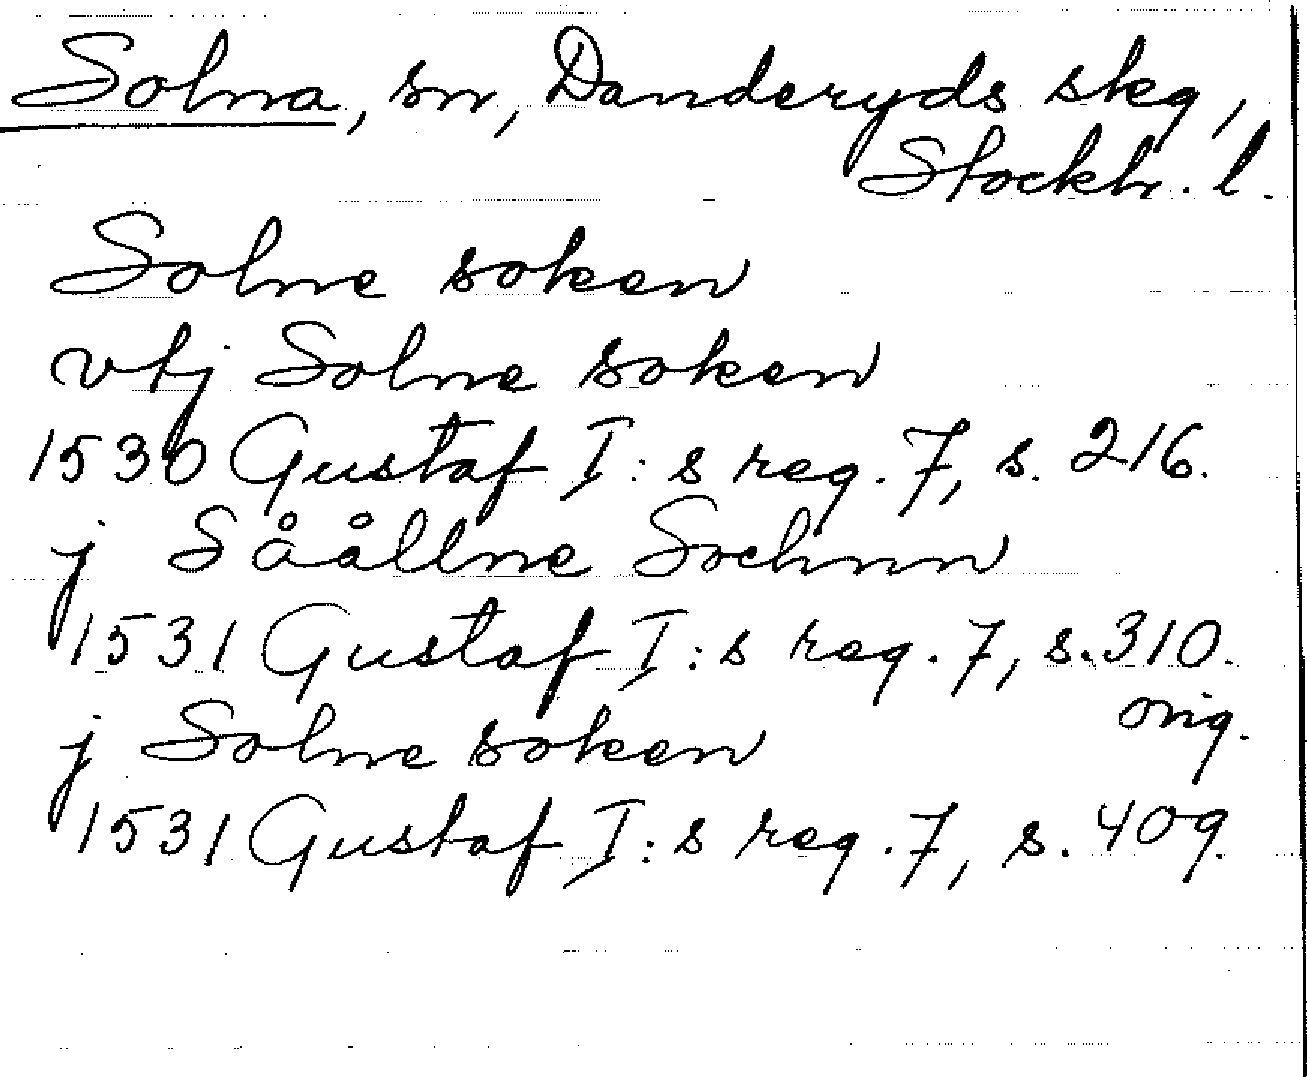 Solna, sn, Danderyds skg,
Stockh. l.
Solne soken
vtj Solne soken
1530 Gustaf I:s reg. 7, s. 216.
j Såållne Sochnn
1531 Gustaf I:s reg. 7, s. 310.
orig.
j Solne soken
1531 Gustaf I:s reg. 7, s. 409.